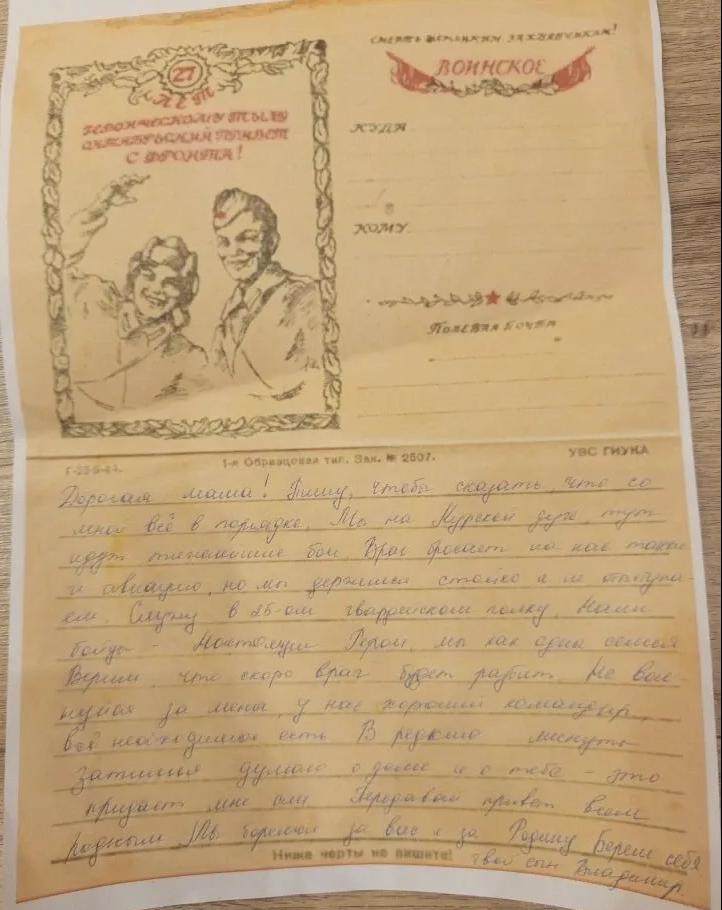 27
ЛЕТ
ГЕРОИЧЕСКОМУ ТЫЛУ
ОКТЯБРЬСКИЙ ПРИВЕТ
С ФРОНТА!
СМЕРТЬ НЕМЕЦКИМ ЗАХВАТЧИКАМ!
ВОИНСКОЕ
КУДА
КОМУ
ПОЛЕВАЯ ПОЧТА
1-я Образцовая тип. Зак. № 2507.
УВС ГИУКА
Дорогая мама! Пишу, чтобы сказать, что со
мной всё в порядке. Мы на Курской дуге, тут
идут тяжелейшие бои. Враг бросает на нас танки
и авиацию, но мы держимся стойко и не отступа-
ем. Служу в 25-ом гвардейском полку. Наши
бойцы - Настоящие Герои, мы как одна семья
Верим, что скоро враг будет разбит. Не вол-
нуйся за меня, у нас хороший командир,
всё необходимое есть В редкие минуты
затишья думаю о доме и о тебе - это
придаёт мне сил Передавай привет всем
родным Мы боремся за вас и за Родину Береги себя
твой сын Владимир
Ниже черты не пишите!